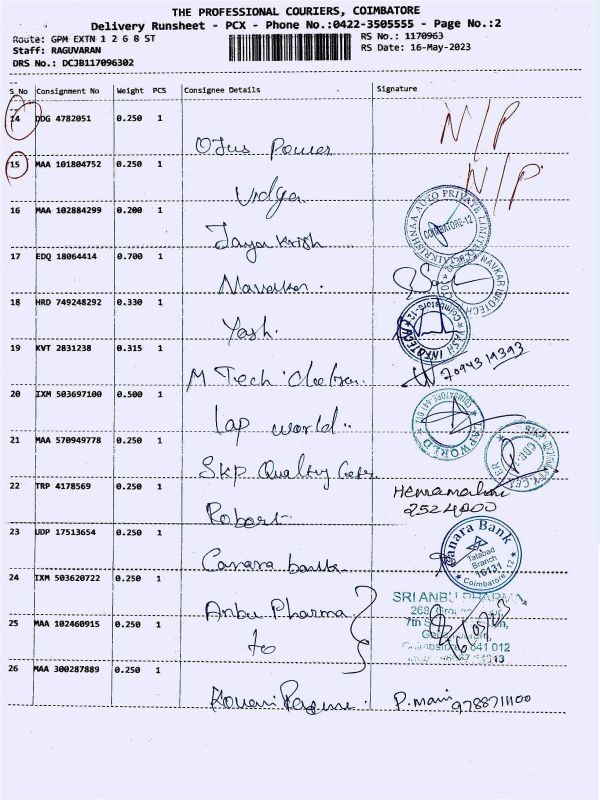 THE PROFESSIONAL COURIERS, COIMBATORE
Delivery Runsheet - PCX - Phone No.:0422-3505555 - Page No.:2
Route: GPM EXTN 1 2 6 8 ST
Staff: RAGUVARAN
DRS No.: DCJB117096302
RS No.: 1170963
RS Date: 16-May-2023
S No Consignment No Weight PCS Consignee Details Signature
14 DDG 4782051 0.250 1 N/P
Power
15 MAA 101804752 0.250 1 N/P.
Vidya
16 MAA 102884299 0.200 1
Jaya Krish
COIMBATORE-12
17 EDQ 18064414 0.700 1
Navakar.
NAVKAR INFOTECH
18 HRD 749248292 0.330 1
Yash.
YASH INFOTECH
19 KVT 2831238 0.315 1
M Tech
20 IXM 503697100 0.500 1
Lap world..
LAP WORLD
21 MAA 570949778 0.250 1
SKP Quality
22 TRP 4178569 0.250 1
Robert
2524000
23 UDP 17513654 0.250 1
Canara bank
Canara Bank
Tatabad
Branch
16131
Coimbatore - 12
24 IXM 503620722 0.250 1
Anbu Pharma
SRI ANBU PHARMA
25 MAA 102460915 0.250 1
to
641 012
26 MAA 300287889 0.250 1
P. Mani 9788711100